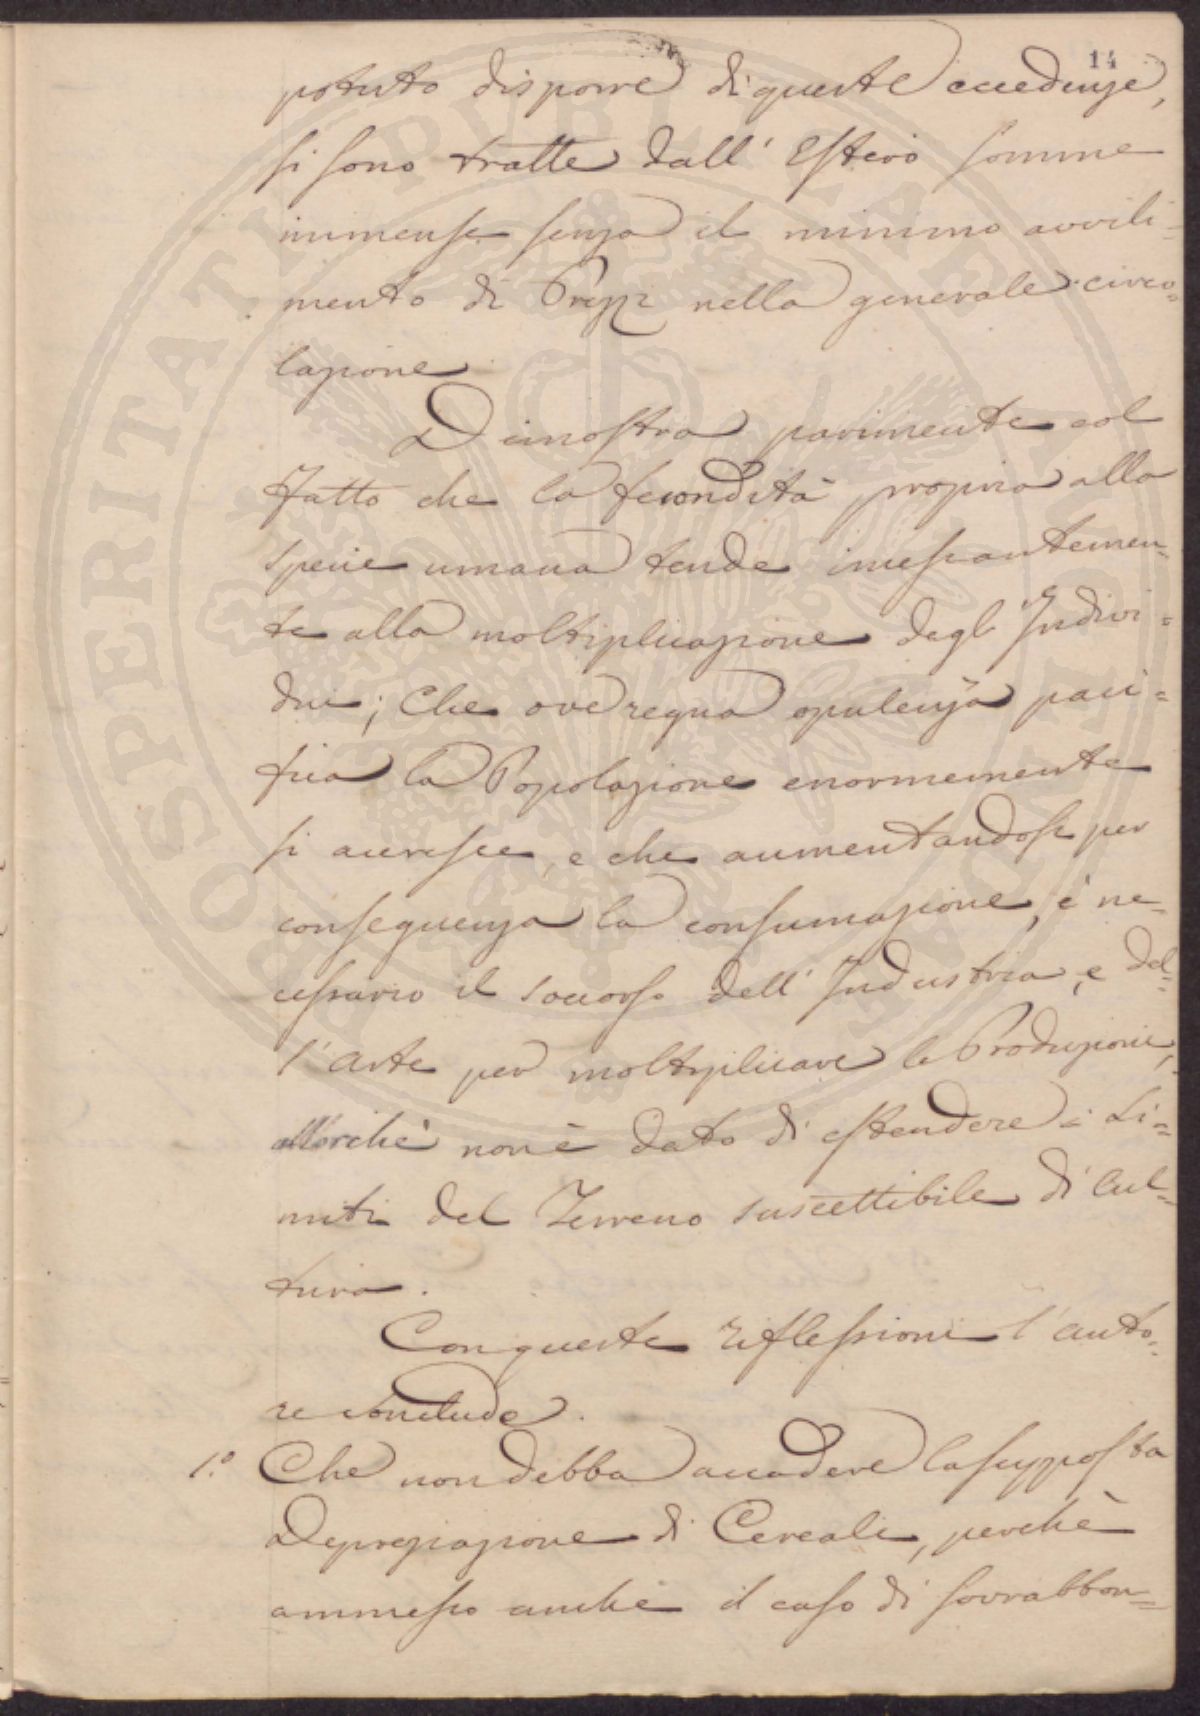 14
potuto disporre di queste eccedenze,
si sono tratte dall' Estero somme
immense senza il minimo avvili=
mento di Prezzi nella generale circo=
lazione
Dimostra parimente col
fatto che la fecondità propria alla
specie umana tende incessantemen=
te alla moltiplicazione degl' Indivi=
dui; Che ove regna opulenza paci=
fica la Popolazione enormemente
si accresce, e che aumentandosi per
conseguenza la consumazione, è ne=
cessario il soccorso dell' Industria, e del=
l'arte per moltiplicare le Produzioni,
allorchè non è dato di estendere i Li=
miti del Terreno suscettibile di Cul=
tura.
Con queste riflessioni l'auto=
re conclude.
1.º Che non debba accadere la supposta
Deprezziazione di Cereali, perchè
ammesso anche il caso di sovrabbon=
PROSPERITATI PUBLICAE AUGENDAE